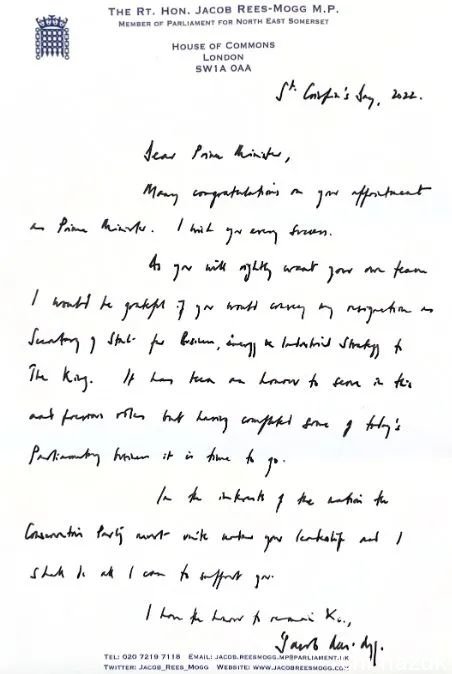 THE RT. HON. JACOB REES-MOGG M.P.
MEMBER OF PARLIAMENT FOR NORTH EAST SOMERSET
HOUSE OF COMMONS
LONDON
SW1A 0AA
St. Crispin's Day, 2022.
Dear Prime Minister,
Many congratulations on your appointment
as Prime Minister. I wish you every success.
As you will rightly want your own team
I would be grateful if you would convey my resignation as
Secretary of State for Business, Energy & Industrial Strategy to
The King. It has been an honour to serve in this
and previous roles but having completed some of today's
Parliamentary business it is time to go.
In the interests of the nation the
Conservative Party must unite under your leadership and I
shall do all I can to support you.
I have the honour to remain &c.,
Jacob Rees-Mogg.
TEL: 020 7219 7118 EMAIL: JACOB.REESMOGG.MP@PARLIAMENT.UK
TWITTER: JACOB_REES_MOGG WEBSITE: WWW.JACOBREESMOGG.COM